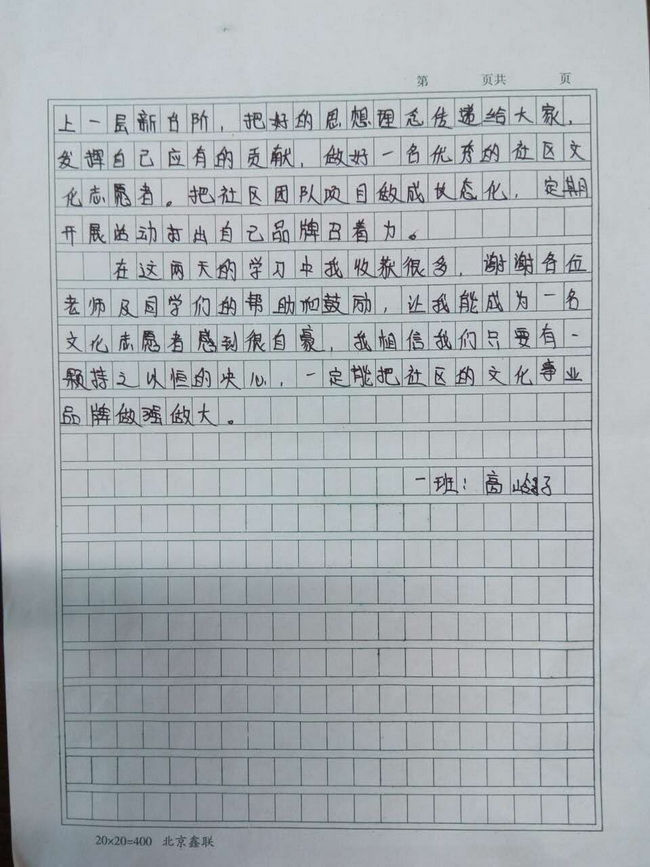 第 页共 页
上一层新台阶，把好的思想理念传递给大家，
发挥自己应有的贡献，做好一名优秀的社区文
化志愿者。把社区团队项目做成状态化，定期
开展活动打出自己品牌召着力。
在这两天的学习中我收获很多，谢谢各位
老师及同学们的帮助和鼓励，让我能成为一名
文化志愿者感到很自豪，我相信我们只要有一
颗持之以恒的决心，一定能把社区的文化事业
品牌做强做大。
一班：高
20×20=400 北京鑫联